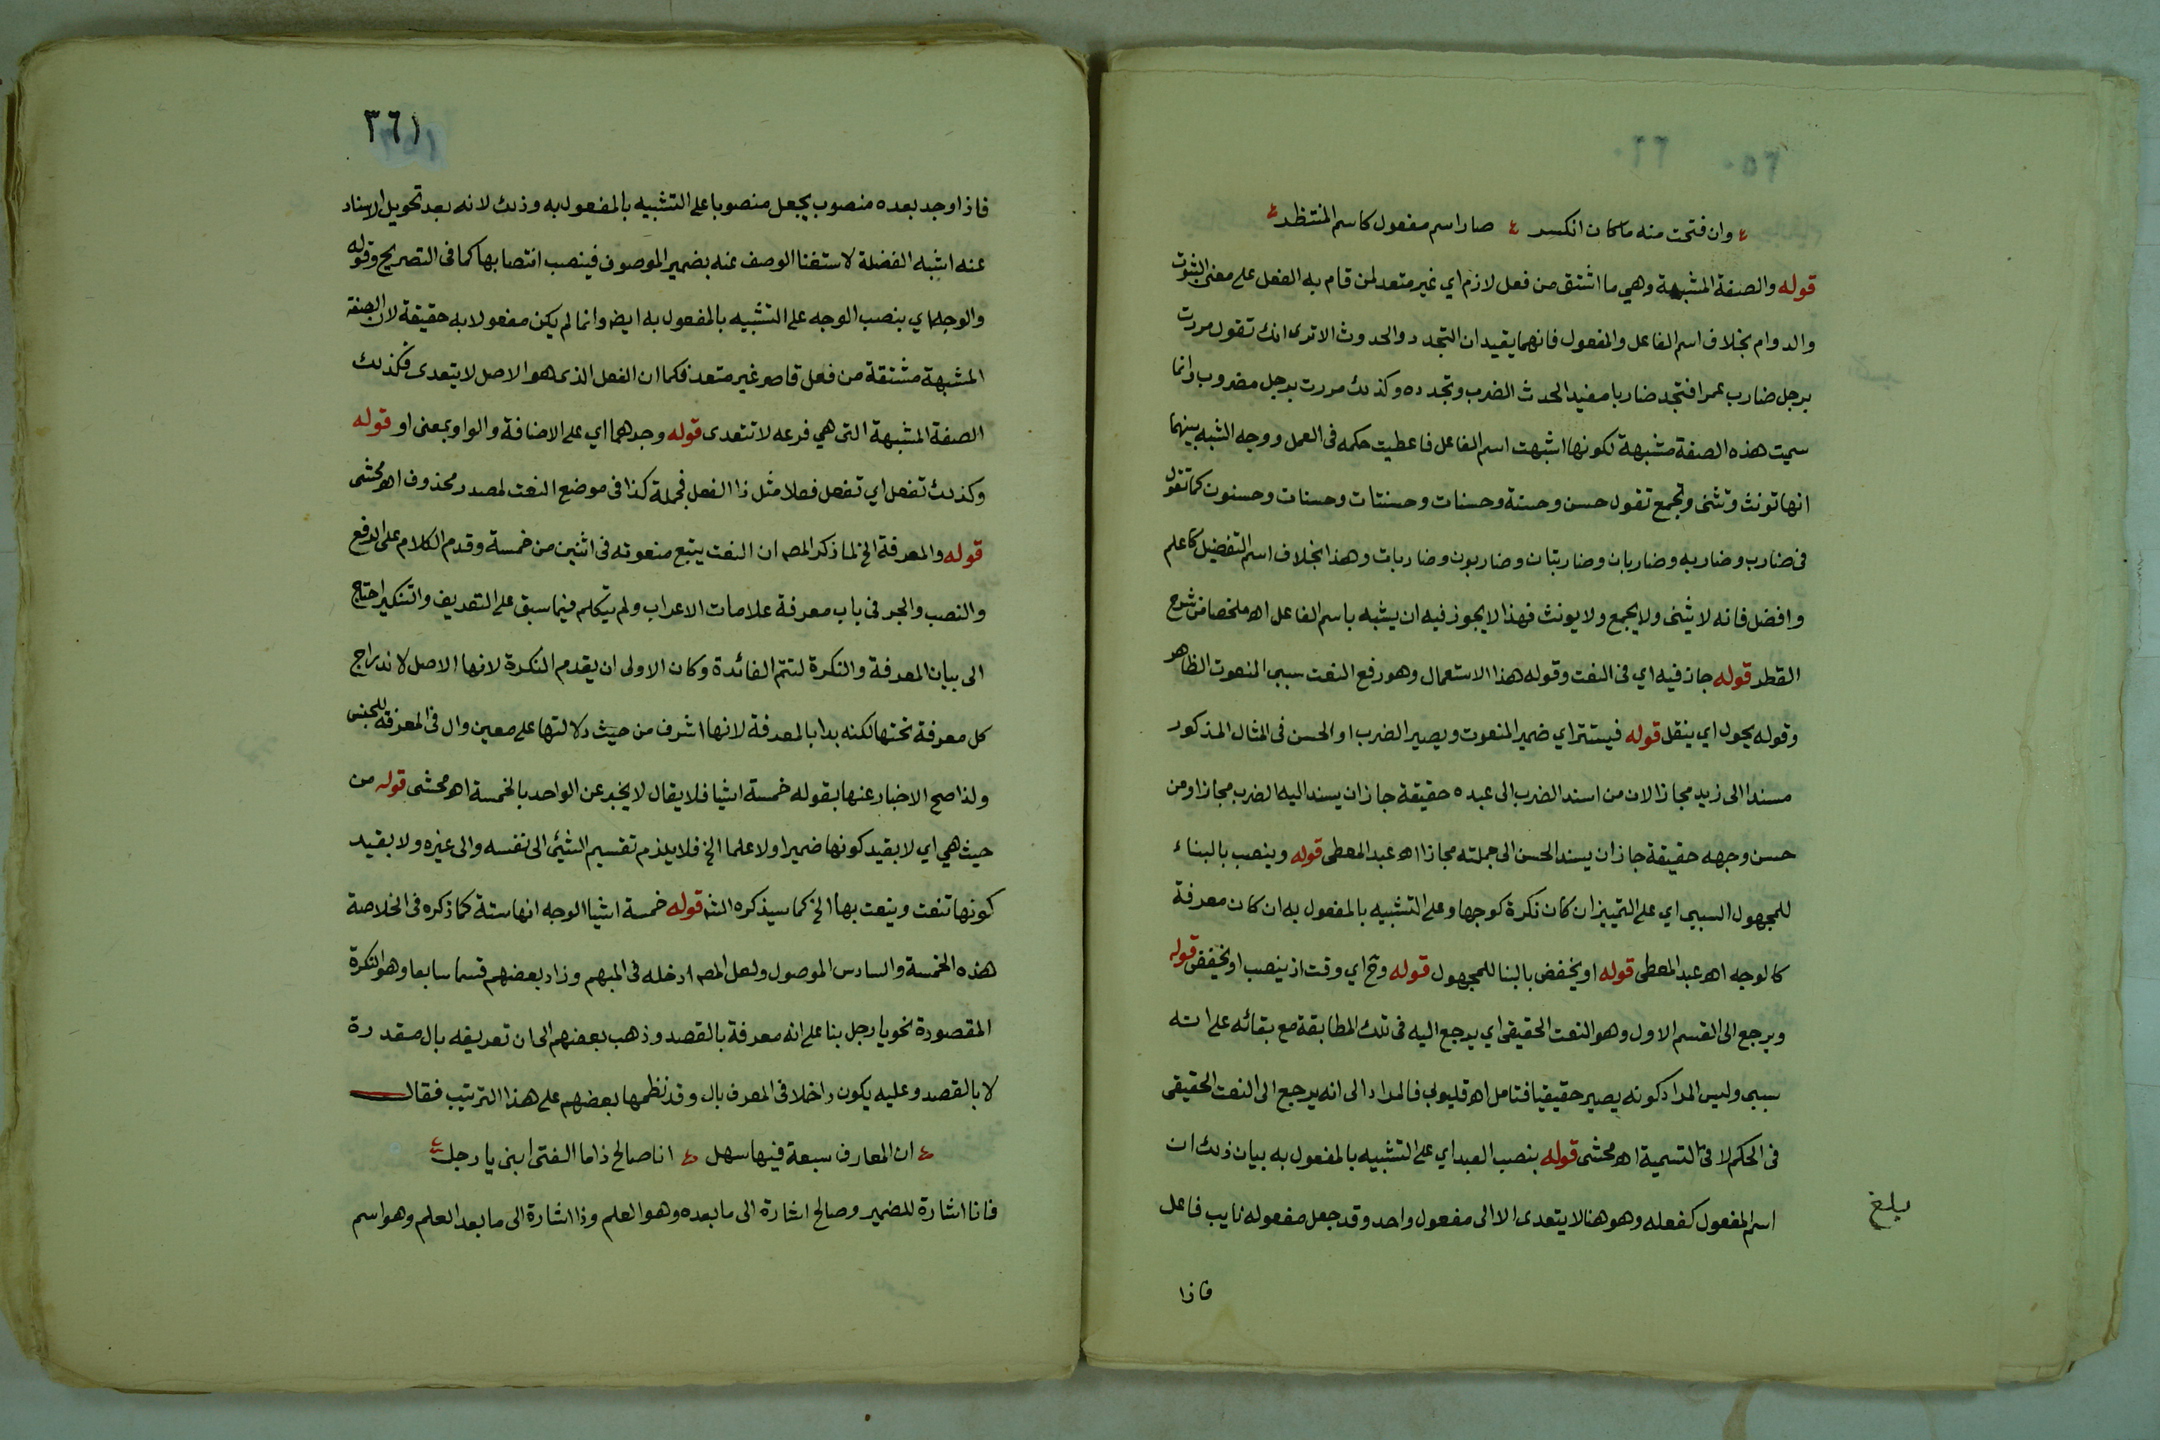 وان فتحت منه ما كان انكسر صار اسم مفعول كاسم المنتظر
قوله والصفة المشبهة وهي ما اشتق من فعل لازم اي غير متعد لمن قام به الفعل على معنى الثبوت
والدوام بخلاف اسم الفاعل والمفعول فانهما يفيدان التجدد والحدوث الا ترى انك تقول مررت
برجل ضارب عمرا فتجد ضاربا مفيد الحدث الضرب وتجدده وكذلك مررت برجل مضروب وانما
سميت هذه الصفة مشبهة لكونها اشبهت اسم الفاعل فاعطيت حكمه في العمل ووجه الشبه بينهما
انها تونث وتثنى وتجمع تقول حسن وحسنة وحسنات وحسنتات وحسنات وحسنون كما تقول
في ضارب وضاربه وضاربان وضاربتان وضاربون وضاربات وهذا بخلاف اسم التفضيل كاعلم
وافضل فانه لا يثنى ولا يجمع ولا يونث فهذا لا يجوز فيه ان يشبه باسم الفاعل اه ملخصا من شرح
القطر قوله جاز فيه اي في النعت وقوله هذا الاستعمال وهو رفع النعت سببى المنعوت الظاهر
وقوله يحول اي ينقل قوله فيستتر اي ضمير المنعوت ويصير الضرب او الحسن في المثال المذكور
مسندا الى زيد مجازا لان من اسند الضرب الى عبده حقيقة جاز ان يسند اليه الضرب مجازا ومن
حسن وجهه حقيقة جاز ان يسند الحسن الى جملته مجازا اه عبد المعطى قوله وينصب بالبناء
للمجهول السببي اي على التمييز ان كان نكرة كوجها وعلى التشبيه بالمفعول به ان كان معرفة
كالوجه اه عبد المعطى قوله او يخفض بالبنا للمجهول قوله وح اي وقت اذ ينصب او يخفض قوله
ويرجع الى القسم الاول وهو النعت الحقيقى اي يرجع اليه في تلك المطابقة مع بقائه على انه
سببى وليس المراد كونه يصير حقيقيا فتامل اه قليوبي فالمراد الى انه يرجع الى النعت الحقيقى
في الحكم لا في التسمية اه محشى قوله بنصب العبد اي على التشبيه بالمفعول به بيان ذلك ان
اسم المفعول كفعله وهو هنا لا يتعدى الا الى مفعول واحد وقد جعل مفعوله نايب فاعل
بلغ
فاذا
٣٦١
فاذا وجد بعده منصوب يجعل منصوبا على التشبيه بالمفعول به وذلك لانه بعد تحويل الاسناد
عنه اشبه الفضلة لاستغنا الوصف عنه بضمير الموصوف فينصب انتصابها كما في التصريح وقوله
والوجه اي بنصب الوجه على التشبيه بالمفعول به ايضا وانما لم يكن مفعولا به حقيقة لان الصفة
المشبهة مشتقة من فعل قاصر غير متعد فكما ان الفعل الذى هو الاصل لا يتعدى فكذلك
الصفة المشبهة التى هي فرعه لا تتعدى قوله وجرهما اي على الاضافة والواو بمعنى او قوله
وكذلك تفعل اي تفعل فعلا مثل ذا الفعل فجملة كذا في موضع النعت لمصدر محذوف اه محشى
قوله والمعرفة الخ لما ذكر المص ان النعت يتبع منعوته في اثنين من خمسة وقدم الكلام على الرفع
والنصب والجر في باب معرفة علامات الاعراب ولم يتكلم فيما سبق على التعريف والتنكير احتاج
الى بيان المعرفة والنكرة لتتم الفائدة وكان الاولى ان يقدم النكرة لانها الاصل لاندراج
كل معرفة تحتها لكنه بدا بالمعرفة لانها اشرف من حيث دلالتها على معين وال في المعرفة للجنس
ولذا صح الاخبار عنها بقوله خمسة اشيا فلا يقال لا يخبر عن الواحد بالخمسة اه محشى قوله من
حيث هي اي لا بقيد كونها ضميرا ولا علما الخ فلا يلزم تقسيم الشيئ الى نفسه والى غيره ولا بقيد
كونها تنعت وينعت بها الخ كما سيذكره الش قوله خمسة اشيا الوجه انها ستة كما ذكره في الخلاصة
هذه الخمسة والسادس الموصول ولعل المص ادخله في المبهم وزاد بعضهم قسما سابعا وهو النكرة
المقصودة نحو يا رجل بنا على انه معرفة بالقصد وذهب بعضهم الى ان تعريفه بال مقدرة
لا بالقصد وعليه يكون داخلا في المعرف بال وقد نظمها بعضهم على هذا الترتيب فقال
ان المعارف سبعة فيها سهل انا صالح ذا ما الفتى ابنى يا رجل
فانا اشارة للضمير وصالح اشارة الى ما بعده وهو العلم وذا اشارة الى ما بعد العلم وهو اسم